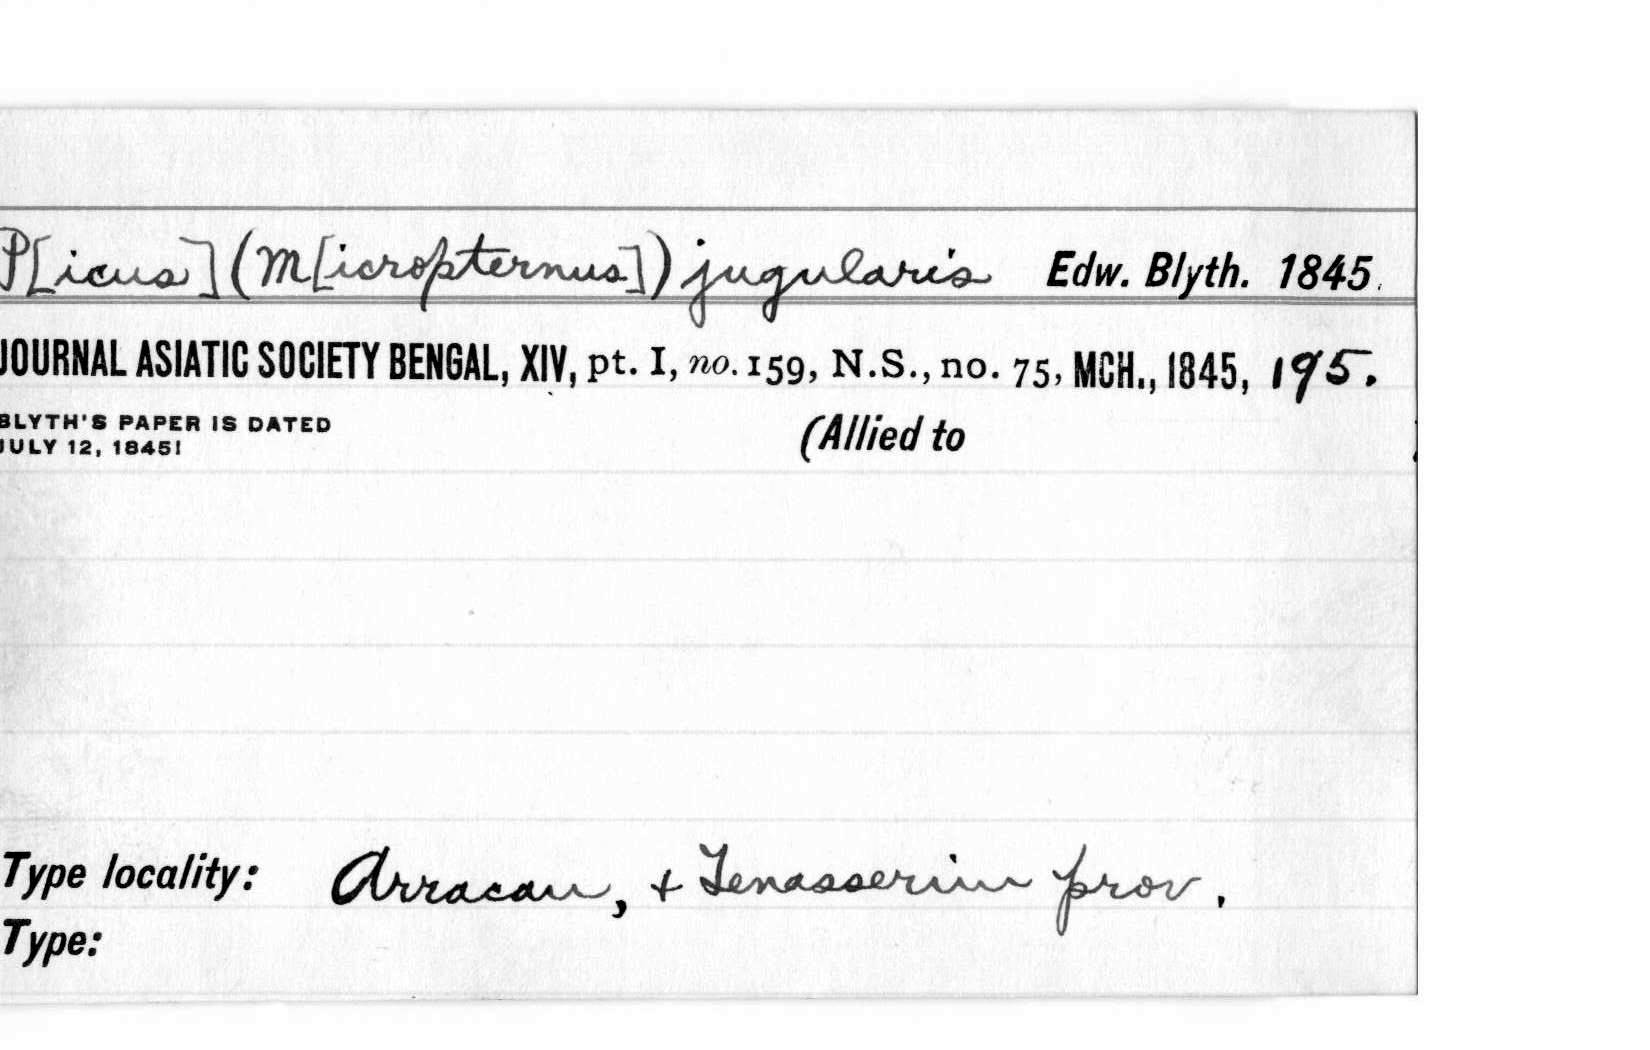 P[icus] (M[icropternus]) jugularis Edw. Blyth. 1845.
JOURNAL ASIATIC SOCIETY BENGAL, XIV, pt. I, no. 159, N.S., no. 75, MCH., 1845, 195.
BLYTH'S PAPER IS DATED (Allied to )
JULY 12, 1845!
Type locality: Arracan, + Tenasserim prov.
Type: